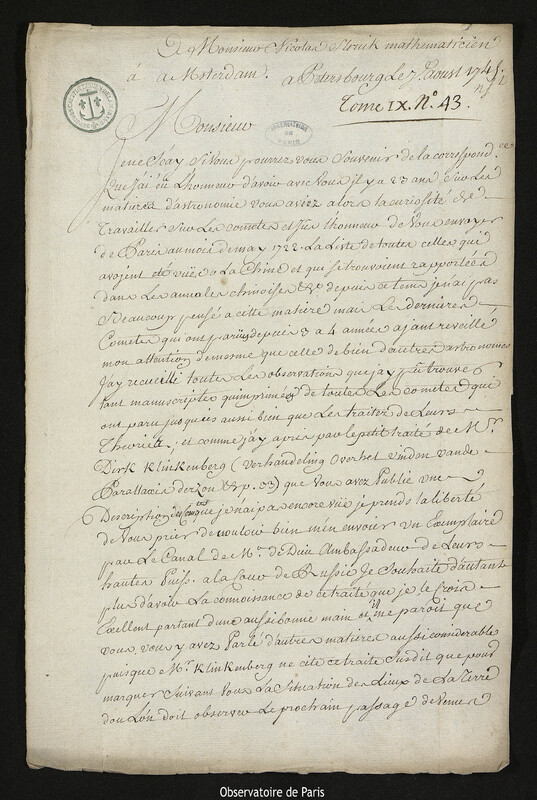 A Monsieur Nicolas Struik mathematicien
à Amsterdam. a Petersbourg Le 7.e aoust 1745
Tome IX. N.o 43.
Monsieur
OBSERVATOIRE DE PARIS
Je ne Sçay Si Vous pourrez vous Souvenir de la correspond.ce
Que J'ai eu L'honneur d'avoir avec Vous il y a 23 ans Sur Les
matieres d'astronomie vous aviez alors la curiosité de
Travailler Sur Les cometes et J'us l'honneur de Vous envoyer
de Paris au mois de may 1722. La Liste de toutes celles qui
avojent eté vües a La Chine et qui se trouvoient rapportées
dans Les annales chinoises &c. depuis ce tems je n'ai pas
Beaucoup pensé a cette matiere mais Les dernieres
Cometes qui ont parües depuis 3 a 4 années ajant reveillé
mon attention de mesme que celle de bien d'autres astronomes
J'ay recueilli toutes Les observations que j'ay pu trouver
tant manuscriptes qu'imprimées de toutes Les cometes qui
ont paru jusques icy aussi bien que Les traitez de Leurs
Theories; et comme j'ay apris par le petit traité de M.r
Dirk Klinkenberg (Verhandeling over het vinden van de
Parallaxis der Zon &c p. 33) que vous avez Publié une
Description des Cometes que je n'ai pas encore vüe je prends la liberté
de Vous prier de vouloir bien m'en envoier un Exemplaire
par Le Canal de M.r de Dieu Ambassadeur de Leurs
hautes Puiss. a la Cour de Russie Je Souhaite d'autant
plus d'avoir La connoissance de ce traité que je le Crois
Excellent partant d'une aussi bonne main et il me paroit que
vous y avez Parlé d'autres matieres aussi considerable
puisque M.r Klinkenberg ne cite ce traité Susdit que pour
marquer Suivant Vous La Situation des Lieux de La Terre
d'ou L'on doit observer Le prochain passage de Venus
Observatoire de Paris